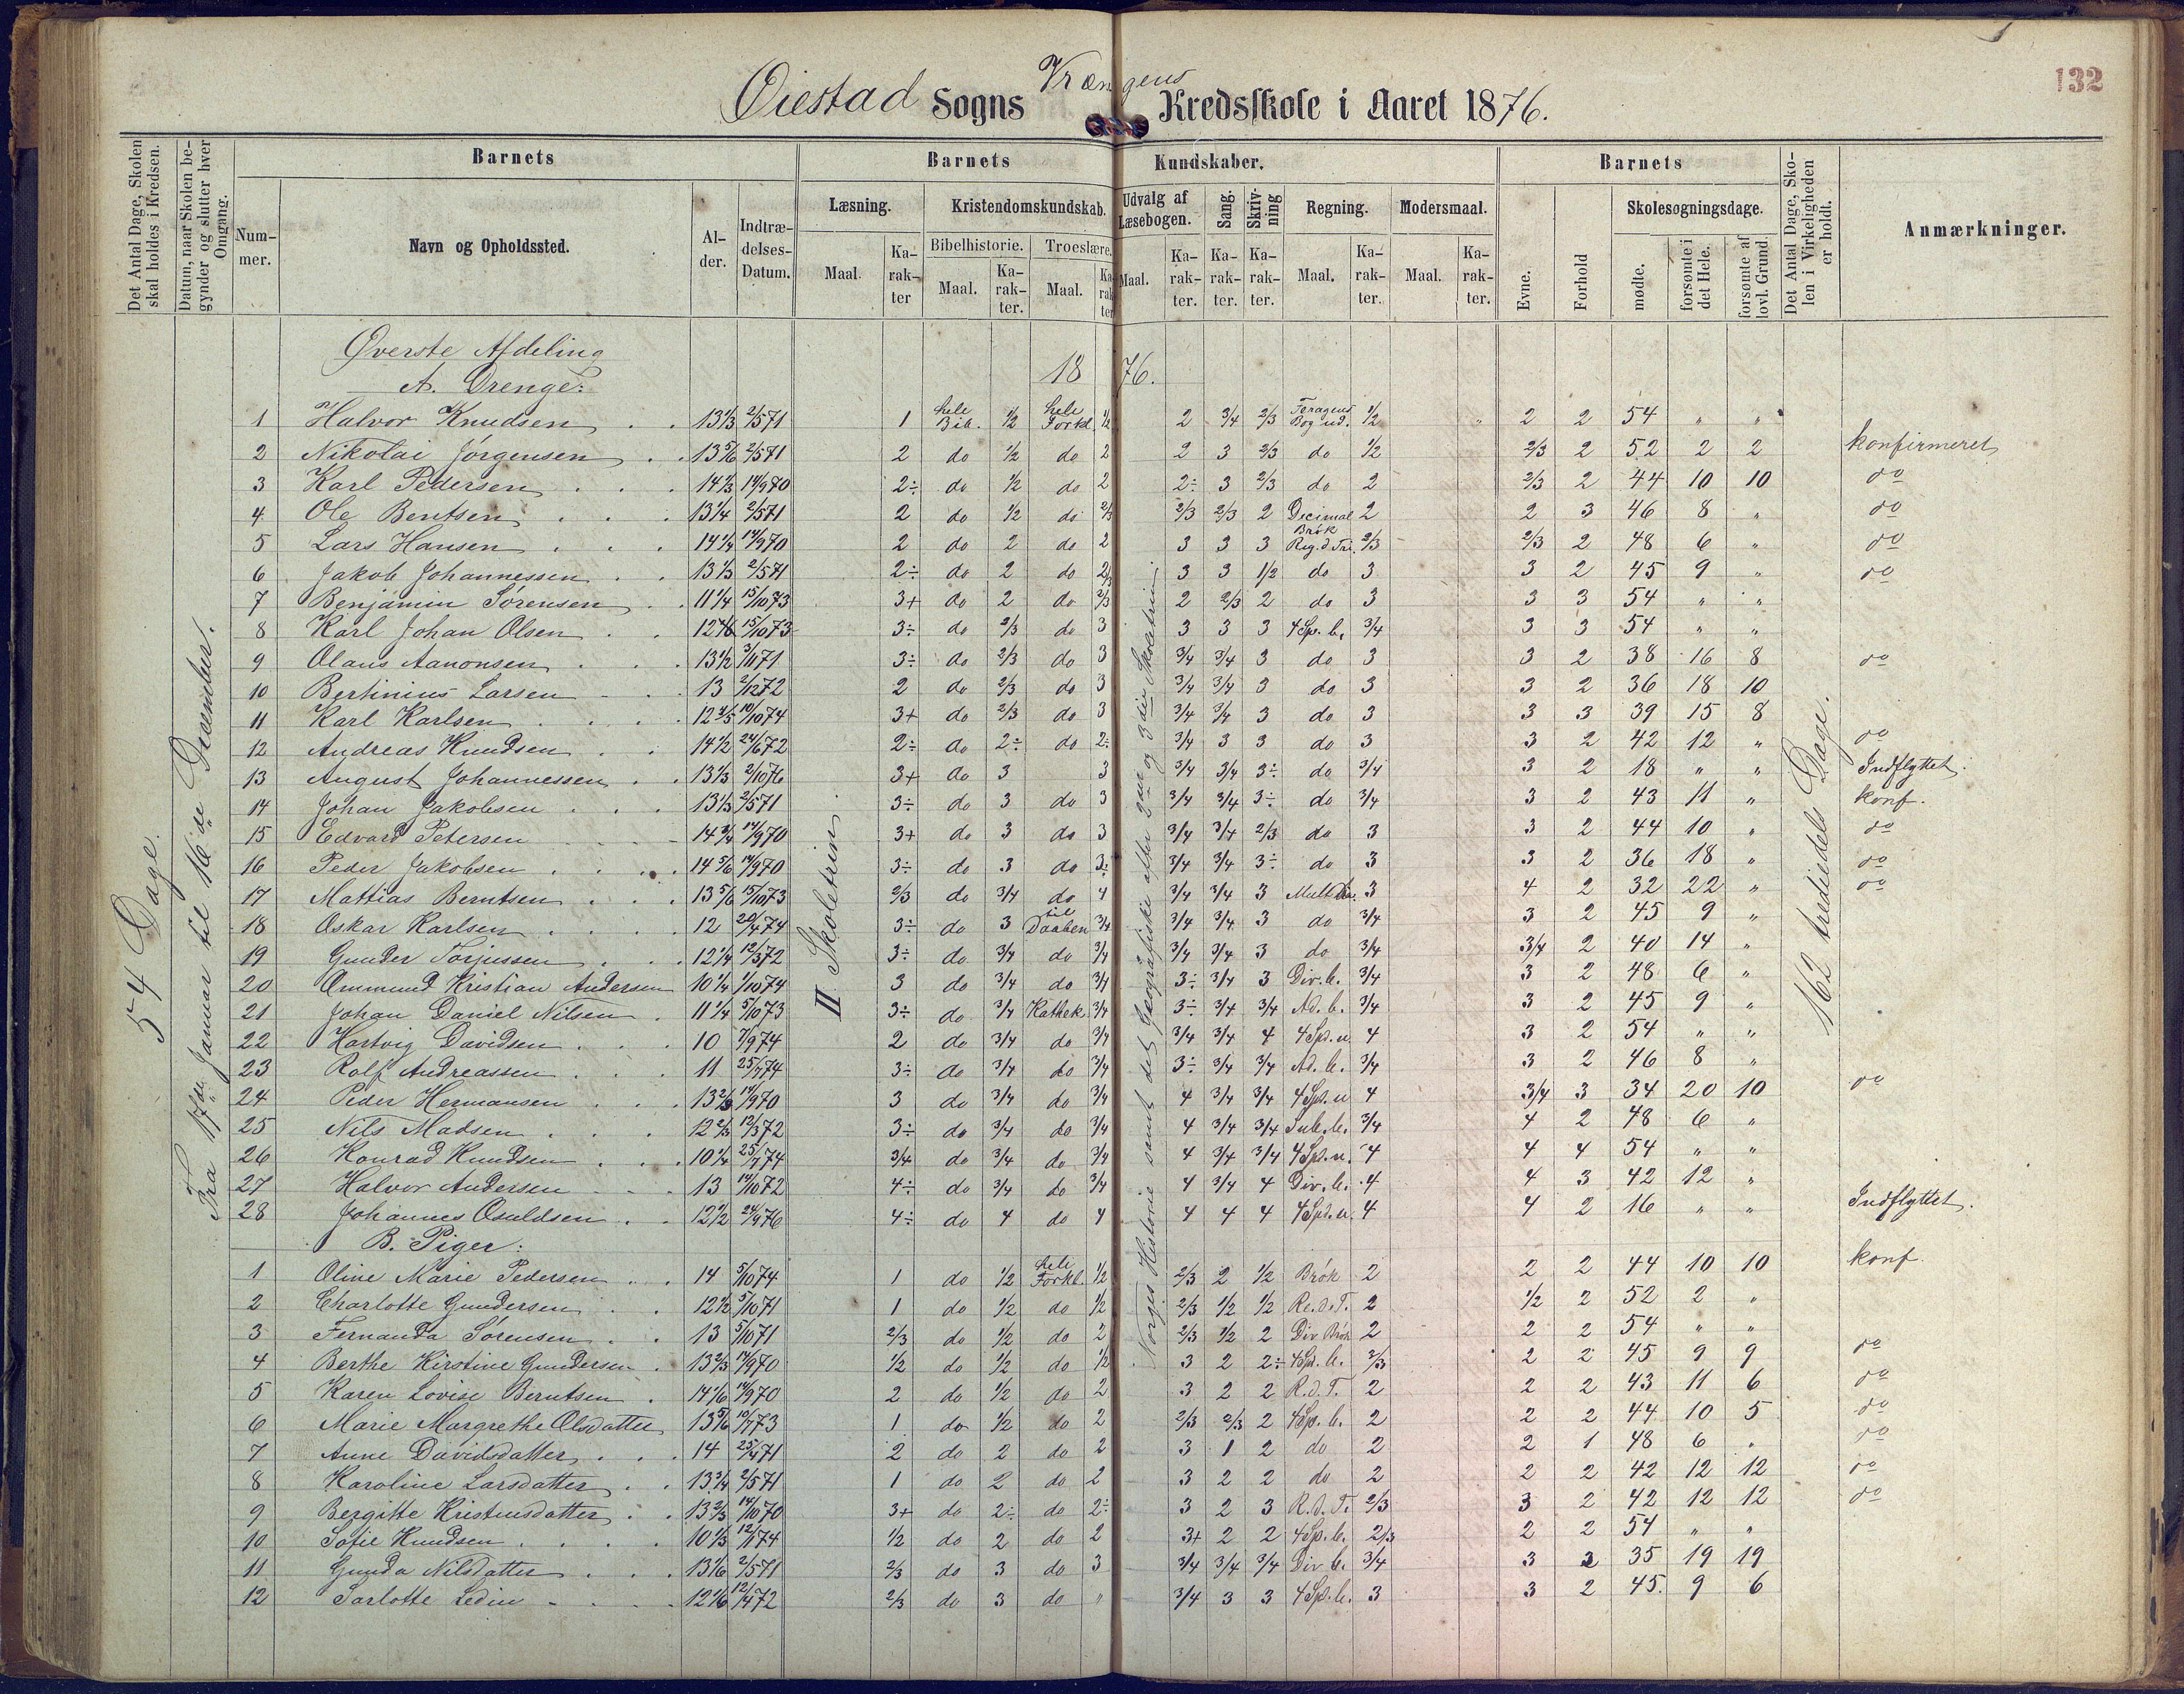 132
Øiestad Sogns Vrængens Kredsskole i Aaret 1876.
Det Antal Dage, Skolen skal holdes i Kredsen.
Datum, naar Skolen begynder og slutter hver Omgang.
Barnets
Barnets Kundskaber.
Barnets
Det Antal Dage, Skolen i Virkeligheden er holdt.
Anmærkninger.
Nummer.
Navn og Opholdssted.
Alder.
Indtrædelses-Datum.
Læsning.
Kristendomskundskab.
Udvalg af Læsebogen.
Sang.
Skrivning
Regning.
Modersmaal.
Evne.
Forhold
Skolesøgningsdage.
Bibelhistorie.
Troeslære.
Maal.
Karakter
mødte.
forsømte i det Hele.
forsømte af lovl. Grund.
54 Dage.
Fra 17de Januar til 16de December.
II Skoletrin
Norges Historie samt det geografiske efter 2det og 3die Skoletrin.
162 trediedels Dage.
Øverste Afdeling 1876.
A. Drenge:
1 Halvor Knudsen 13 1/3 2/5 71 1 hele Bib. 1/2 hele Forkl. 1/2 2 3/4 2/3 1/2 2 2 54 " "
2 Nikolai Jørgensen 13 5/6 2/5 71 2 do 1/2 do 2 2 3 2/3 do 1/2 2/3 2 52 2 2 konfirmeret
3 Karl Pedersen 14 1/3 14/9 70 2÷ do 1/2 do 2 2÷ 3 2/3 do 2 2/3 2 44 10 10 do
4 Ole Bentsen 13 1/4 2/5 71 2 do 1/2 do 2/3 2/3 2/3 2 Decimal Brøk 2 2 3 46 8 " do
5 Lars Hansen 14 1/4 14/9 70 2 do 2 do 2 3 3 3 Reg. d. Tri. 2/3 2/3 2 48 6 " do
6 Jakob Johannessen 13 1/3 2/5 71 2÷ do 2 do 2/3 3 3 1/2 do 3 3 2 45 9 " do
7 Benjamin Sørensen 11 1/4 15/10 73 3+ do 2 do 2/3 2 2/3 2 do 3 3 3 54 " "
8 Karl Johan Olsen 15/10 73 3÷ do 2/3 do 3 3 3 3 4 Sp. b. 3/4 3 3 54 " "
9 Olaus Aanonsen 13 1/2 3/11 71 3÷ do 2/3 do 3 3/4 3/4 3 do 3 3 2 38 16 8 do
10 Bertinius Larsen 13 2/12 72 2 do 2/3 do 3 3/4 3/4 3 do 3 3 2 36 18 10
11 Karl Karlsen 12 4/5 10/10 74 3+ do 2/3 do 3 3/4 3/4 3 do 3 3 3 39 15 8
12 Andreas Knudsen 14 1/2 24/6 72 2÷ do 2÷ do 2÷ 3/4 3 3 do 3 3 2 42 12 " do
13 August Johannessen 13 1/3 2/10 76 3+ do 3 3 3/4 3/4 3÷ do 3/4 3 2 18 " " Indflyttet.
14 Johan Jakobsen 13 1/3 2/5 71 3÷ do 3 do 3 3/4 3/4 3÷ do 3/4 3 2 43 11 " konf.
15 Edvard Petersen 14 3/4 14/9 70 3+ do 3 do 3 3/4 3/4 2/3 do 3 3 2 44 10 " do
16 Peder Jakobsen 14 5/6 14/9 70 3÷ do 3 do 3÷ 3/4 3/4 3÷ do 3 3 2 36 18 " do
17 Mattias Berntsen 13 5/6 15/10 73 2/3 do 3/4 do 4 3/4 3/4 3 3 4 2 32 22 " do
18 Oskar Karlsen 12 20/4 74 3÷ do 3 til Daaben 3/4 3/4 3/4 3 do 3/4 3 2 45 9 "
19 Gunder Torjussen 12 1/4 12/3 72 3÷ do 3/4 do 3/4 3/4 3/4 3 do 3/4 3/4 2 40 14 "
20 Ommund Kristian Andersen 10 1/4 1/10 74 3 do 3/4 do 3/4 3÷ 3/4 3 Div. b. 3/4 3 2 48 6 "
21 Johan Daniel Nilsen 11 1/4 5/10 73 3÷ do 3/4 Kathek. 3/4 3÷ 3/4 3/4 Ad. b. 3/4 3 2 45 9 "
22 Hartvig Davidsen 10 7/9 74 2 do 3/4 do 3/4 3/4 3/4 4 4 Spd. u. 4 3 2 54 " "
23 Rolf Andreassen 11 25/7 74 3÷ do 3/4 do 3/4 3÷ 3/4 3/4 Ad. b. 3/4 3 2 46 8 "
24 Peder Hermansen 13 2/3 14/9 70 3 do 3/4 do 3/4 4 3/4 3/4 4 Spd. u 4 3/4 3 34 20 10 do
25 Nils Madsen 12 2/3 12/3 72 3÷ do 3/4 do 3/4 4 3/4 3/4 Sub. b. 3/4 4 2 48 6 "
26 Konrad Knudsen 10 1/4 25/7 74 3/4 do 3/4 do 3/4 4 3/4 3/4 4 Spd. u. 4 4 4 54 " "
27 Halvor Andersen 13 14/10 72 4÷ do 3/4 do 3/4 4 3/4 4 Div. b. 4 4 3 42 12 "
28 Johannes Osuldsen 12 1/2 24/9 76 4÷ do 4 do 4 4 4 4 4 Spd. u. 4 4 2 16 " " Indflyttet.
B. Piger:
1 Oline Marie Pedersen 14 5/10 74 1 do 1/2 hele Forkl. 1/2 2/3 2 1/2 Brøk 2 2 2 44 10 10 konf
2 Charlotte Gundersen 12 1/2 5/10 71 1 do 1/2 do 1/2 2/3 1/2 1/2 Re. d. T. 2 1/2 2 52 2 "
3 Fernanda Sørensen 13 5/10 71 2/3 do 1/2 do 2 2/3 1/2 2 Div Brøk 2 2 2 54 " "
4 Berthe Kirstine Gundersen 13 2/3 14/9 70 1/2 do 1/2 do 1/2 3 2 2÷ 4 Sp. b. 2/3 2 2 45 9 9 do
5 Karen Lovise Berntsen 14 1/6 14/9 70 2 do 1/2 do 2 3 2 2 R. d. T. 2 2 2 43 11 6 do
6 Marie Margrethe Olsdatter 13 5/6 10/7 73 1 do 1/2 do 2 2/3 2/3 2 4 Sp. b. 2 2 2 44 10 5 do
7 Anne Davidsdatter 14 25/4 71 2 do 2 do 2 3 1 2 do 2 2 1 48 6 " do
8 Karoline Larsdatter 13 3/4 2/5 71 1 do 2 do 2 3 2 2 do 2 2 2 42 12 12 do
9 Bergitte Kristensdatter 13 2/3 14/10 70 3+ do 2÷ do 2÷ 3 2 3 R. d. T. 2/3 3 2 42 12 12 do
10 Sofie Knudsen 10 1/3 12/1 74 1/2 do 2 do 2 3+ 2 2 4 Sp. b. 2/3 2 2 54 " "
11 Gunda Nilsdatter 13 1/6 2/5 71 2/3 do 3 do 3 3/4 3/4 3/4 Div b. 3/4 3 3 35 19 19
12 Sarlotte Ledin 12 1/6 12/4 72 2/3 do 3 do " 3/4 3 3 4 Sp. b. 3 3 2 45 9 6